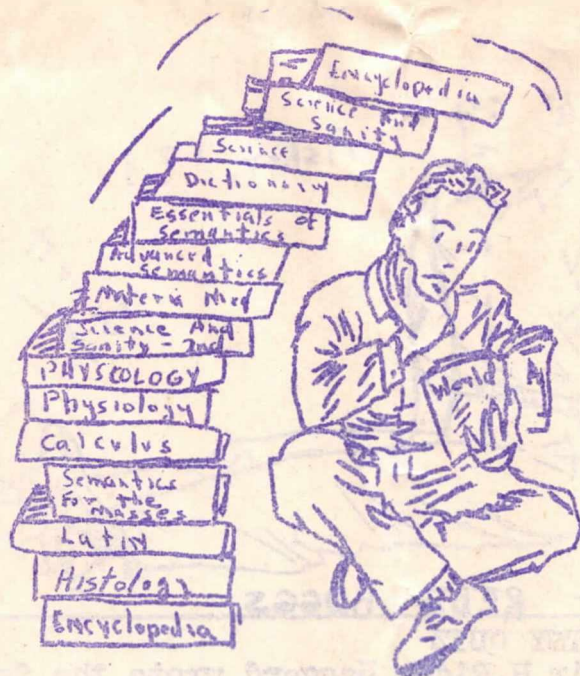 Encyclopedia
Science And
Sanity
Science
Dictionary
Essentials of
Semantics
Advanced
Semantics
Materia Med
Science And
Sanity - 2nd
PHYSCOLOGY
Physiology
Calculus
Semantics
For the
Masses
Latin
Histology
Encyclopedia
World